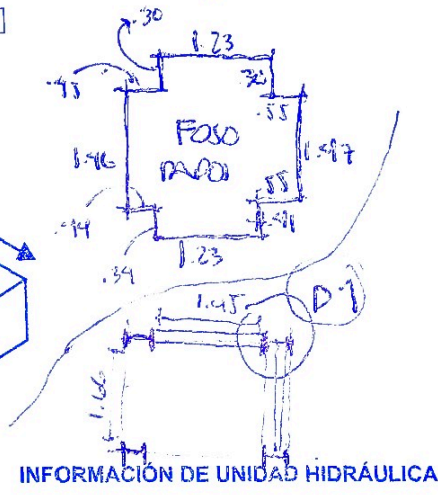 .30
1.23
.30
.55
FOSO
1.46
1.47
.55
.44
.34
1.23
1.45
D-1
1.66
INFORMACIÓN DE UNIDAD HIDRÁULICA